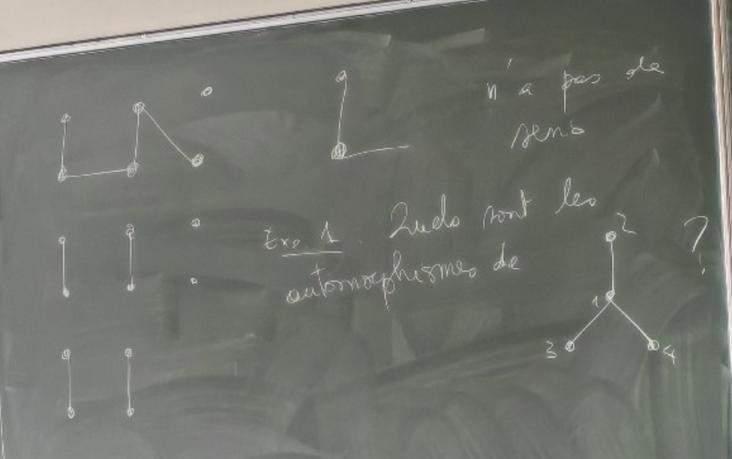 n'a pas de
sens
Exo 1. Quels sont les
automorphismes de
?
2
1
3
4